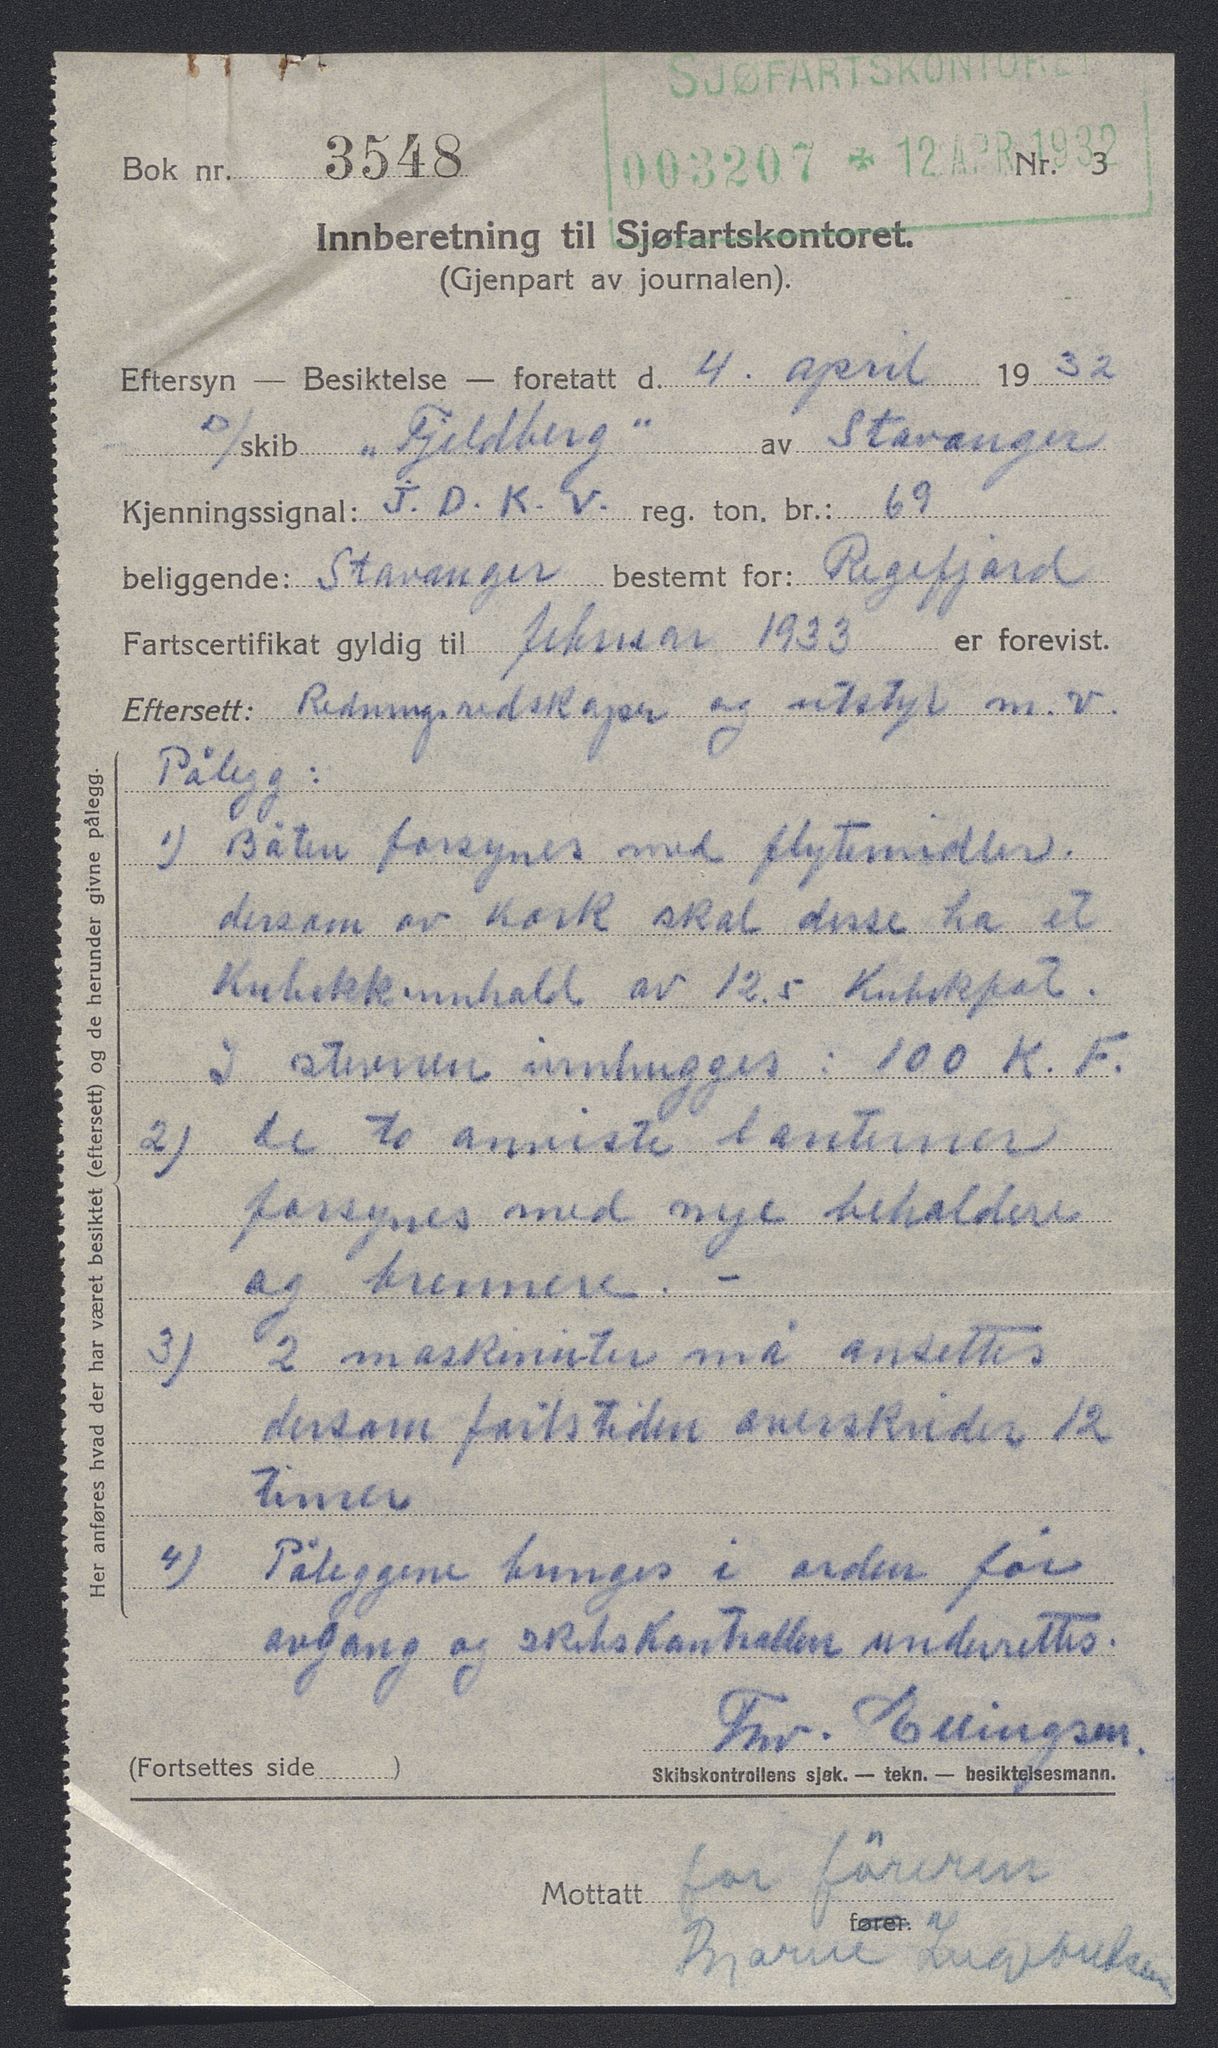 SJØFARTSKONTORET
003207 * 12 APR 1932
Bok nr. 3548 Nr. 3
Innberetning til Sjøfartskontoret.
(Gjenpart av journalen).
Eftersyn — Besiktelse — foretatt d. 4. april 1932
D/skib „Fjeldberg" av Stavanger
Kjenningssignal: J. D. K. V. reg. ton. br.: 69
beliggende: Stavanger bestemt for: Regefjord
Fartscertifikat gyldig til februar 1933 er forevist.
Eftersett: Redningsredskaper og utstyr m.v.
Her anføres hvad der har været besiktet (eftersett) og de herunder givne pålegg.
Pålegg:
1) Båten forsynes med flytemidler.
dersom av kork skal disse ha et
Kubikkinnhold av 12.5 Kubikfot.
I stevnen innhugges: 100 K. F.
2) de to anviste lanterner
forsynes med nye beholdere
og brennere. -
3) 2 maskinister må ansettes
dersom fartstiden overskrider 12
timer
4) Påleggene bringes i orden før
avgang og skibskontrollen underrettes.
Thv. Ellingsen.
(Fortsettes side )
Skibskontrollens sjøk. — tekn. — besiktelsesmann.
Mottatt for föreren
fører.
Bjarne